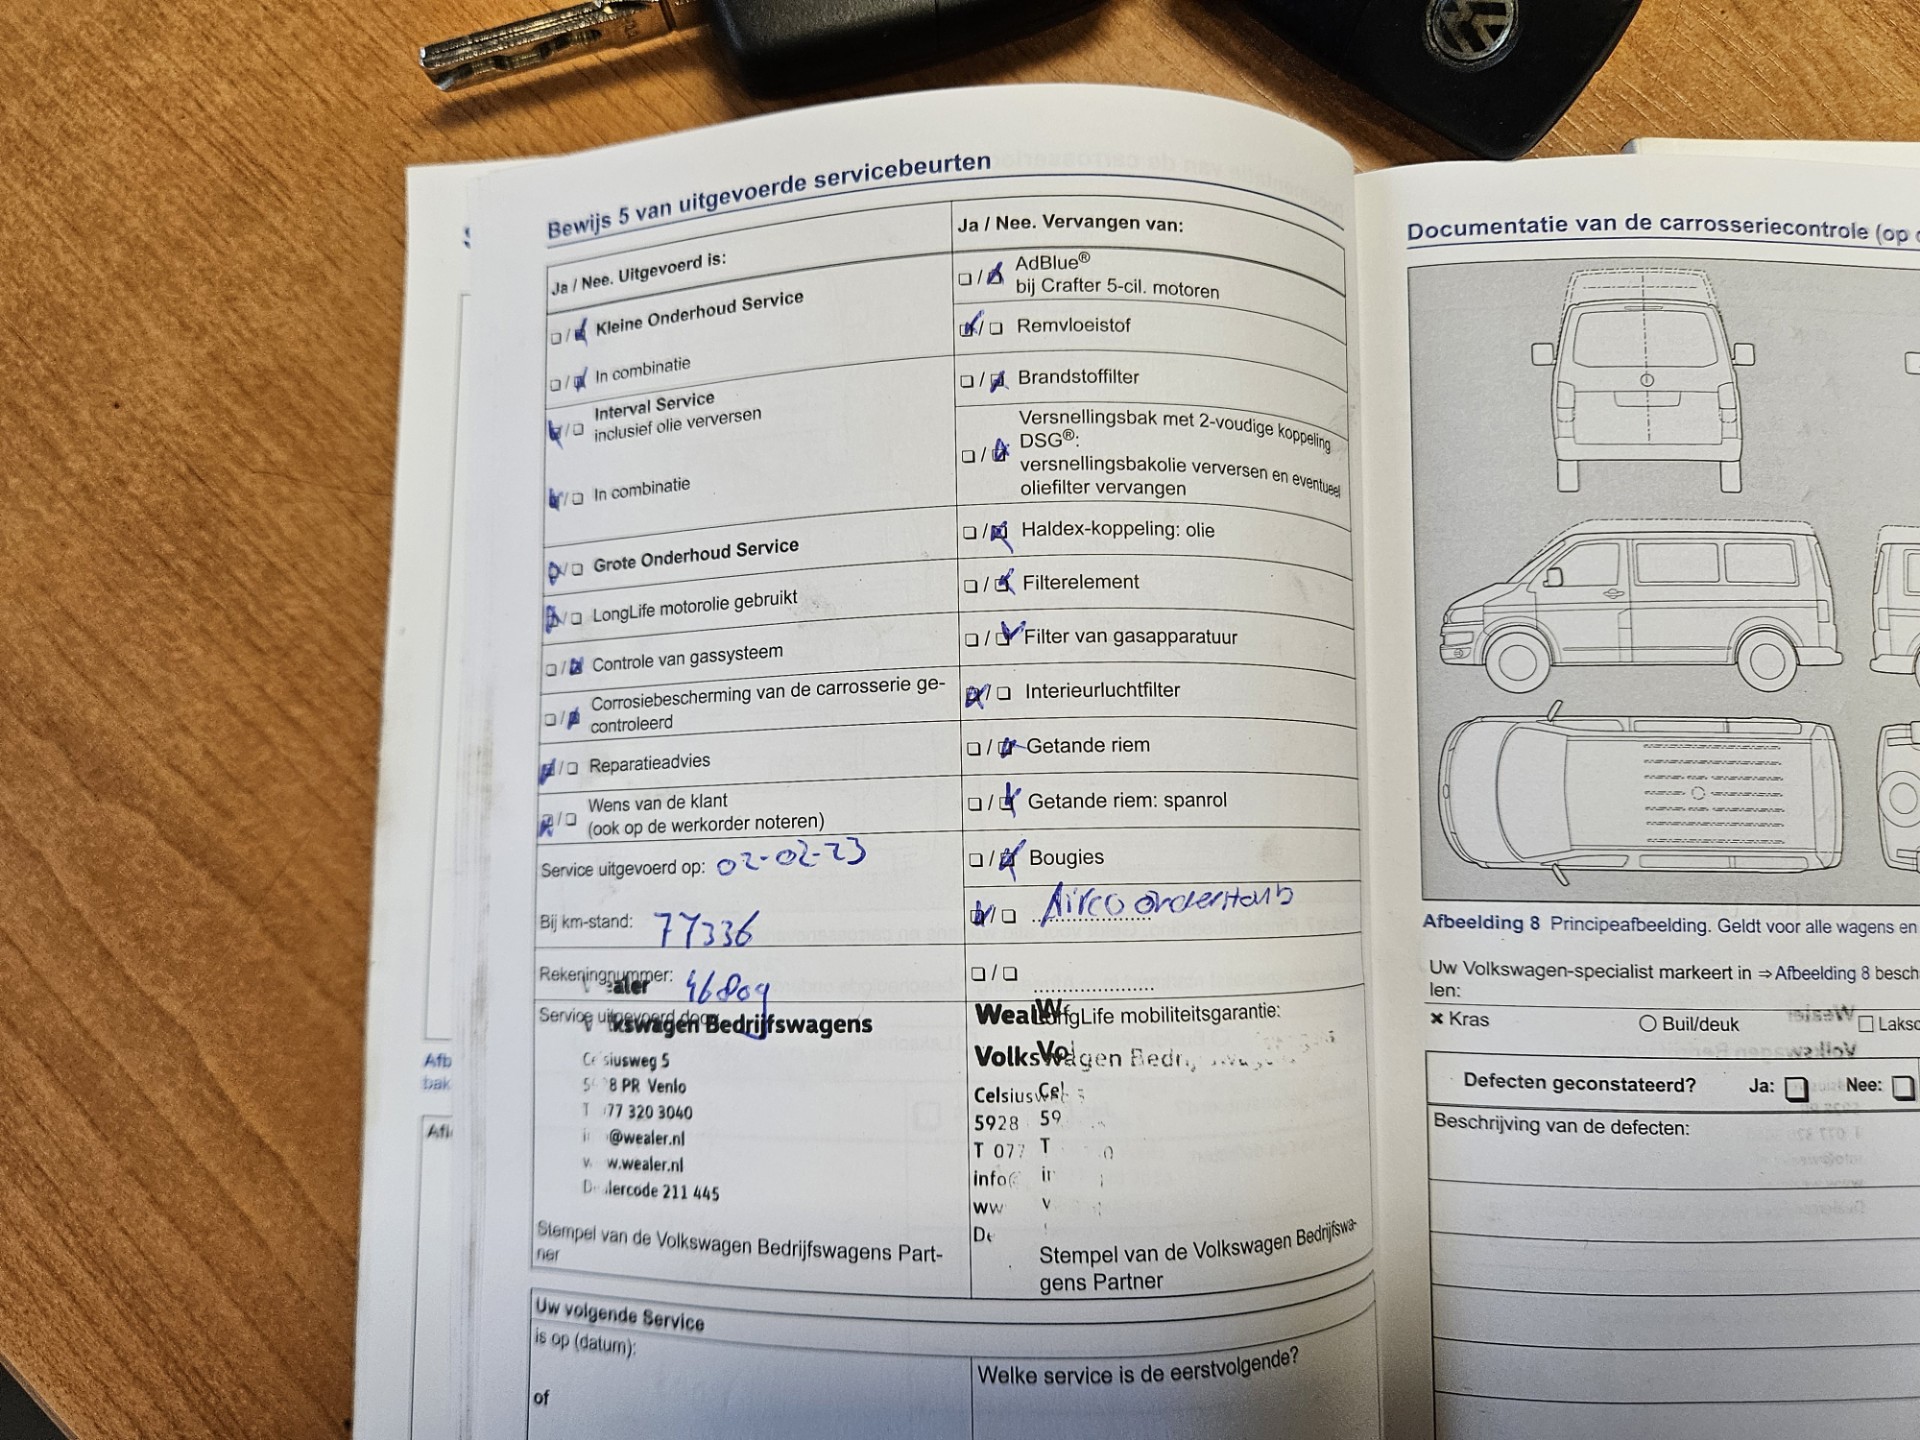 Bewijs 5 van uitgevoerde servicebeurten
Ja / Nee. Uitgevoerd is:
Kleine Onderhoud Service
In combinatie
Interval Service
inclusief olie verversen
In combinatie
Grote Onderhoud Service
LongLife motorolie gebruikt
Controle van gassysteem
Corrosiebescherming van de carrosserie ge-
controleerd
Reparatieadvies
Wens van de klant
(ook op de werkorder noteren)
Service uitgevoerd op: 02-02-23
Bij km-stand: 77336
Rekeningnummer:
Service uitgevoerd door:
Bedrijfswagens
5
8 PR Venlo
77 320 3040
@wealer.nl
w.wealer.nl
211 445
Stempel van de Volkswagen Bedrijfswagens Part-
ner
Ja / Nee. Vervangen van:
AdBlue®
bij Crafter 5-cil. motoren
Remvloeistof
Brandstoffilter
Versnellingsbak met 2-voudige koppeling
DSG®:
versnellingsbakolie verversen en eventueel
oliefilter vervangen
Haldex-koppeling: olie
Filterelement
Filter van gasapparatuur
Interieurluchtfilter
Getande riem
Getande riem: spanrol
Bougies
Airco
LongLife mobiliteitsgarantie:
Volkswagen
5928
T 077
Stempel van de Volkswagen Bedrijfswa-
gens Partner
Uw volgende Service
is op (datum):
of
Welke service is de eerstvolgende?
Afb
bak
Documentatie van de carrosseriecontrole (op
Afbeelding 8 Principeafbeelding. Geldt voor alle wagens en
Uw Volkswagen-specialist markeert in ⇒ Afbeelding 8 besch
len:
× Kras
Buil/deuk
Laksc
Defecten geconstateerd? Ja: Nee:
Beschrijving van de defecten: